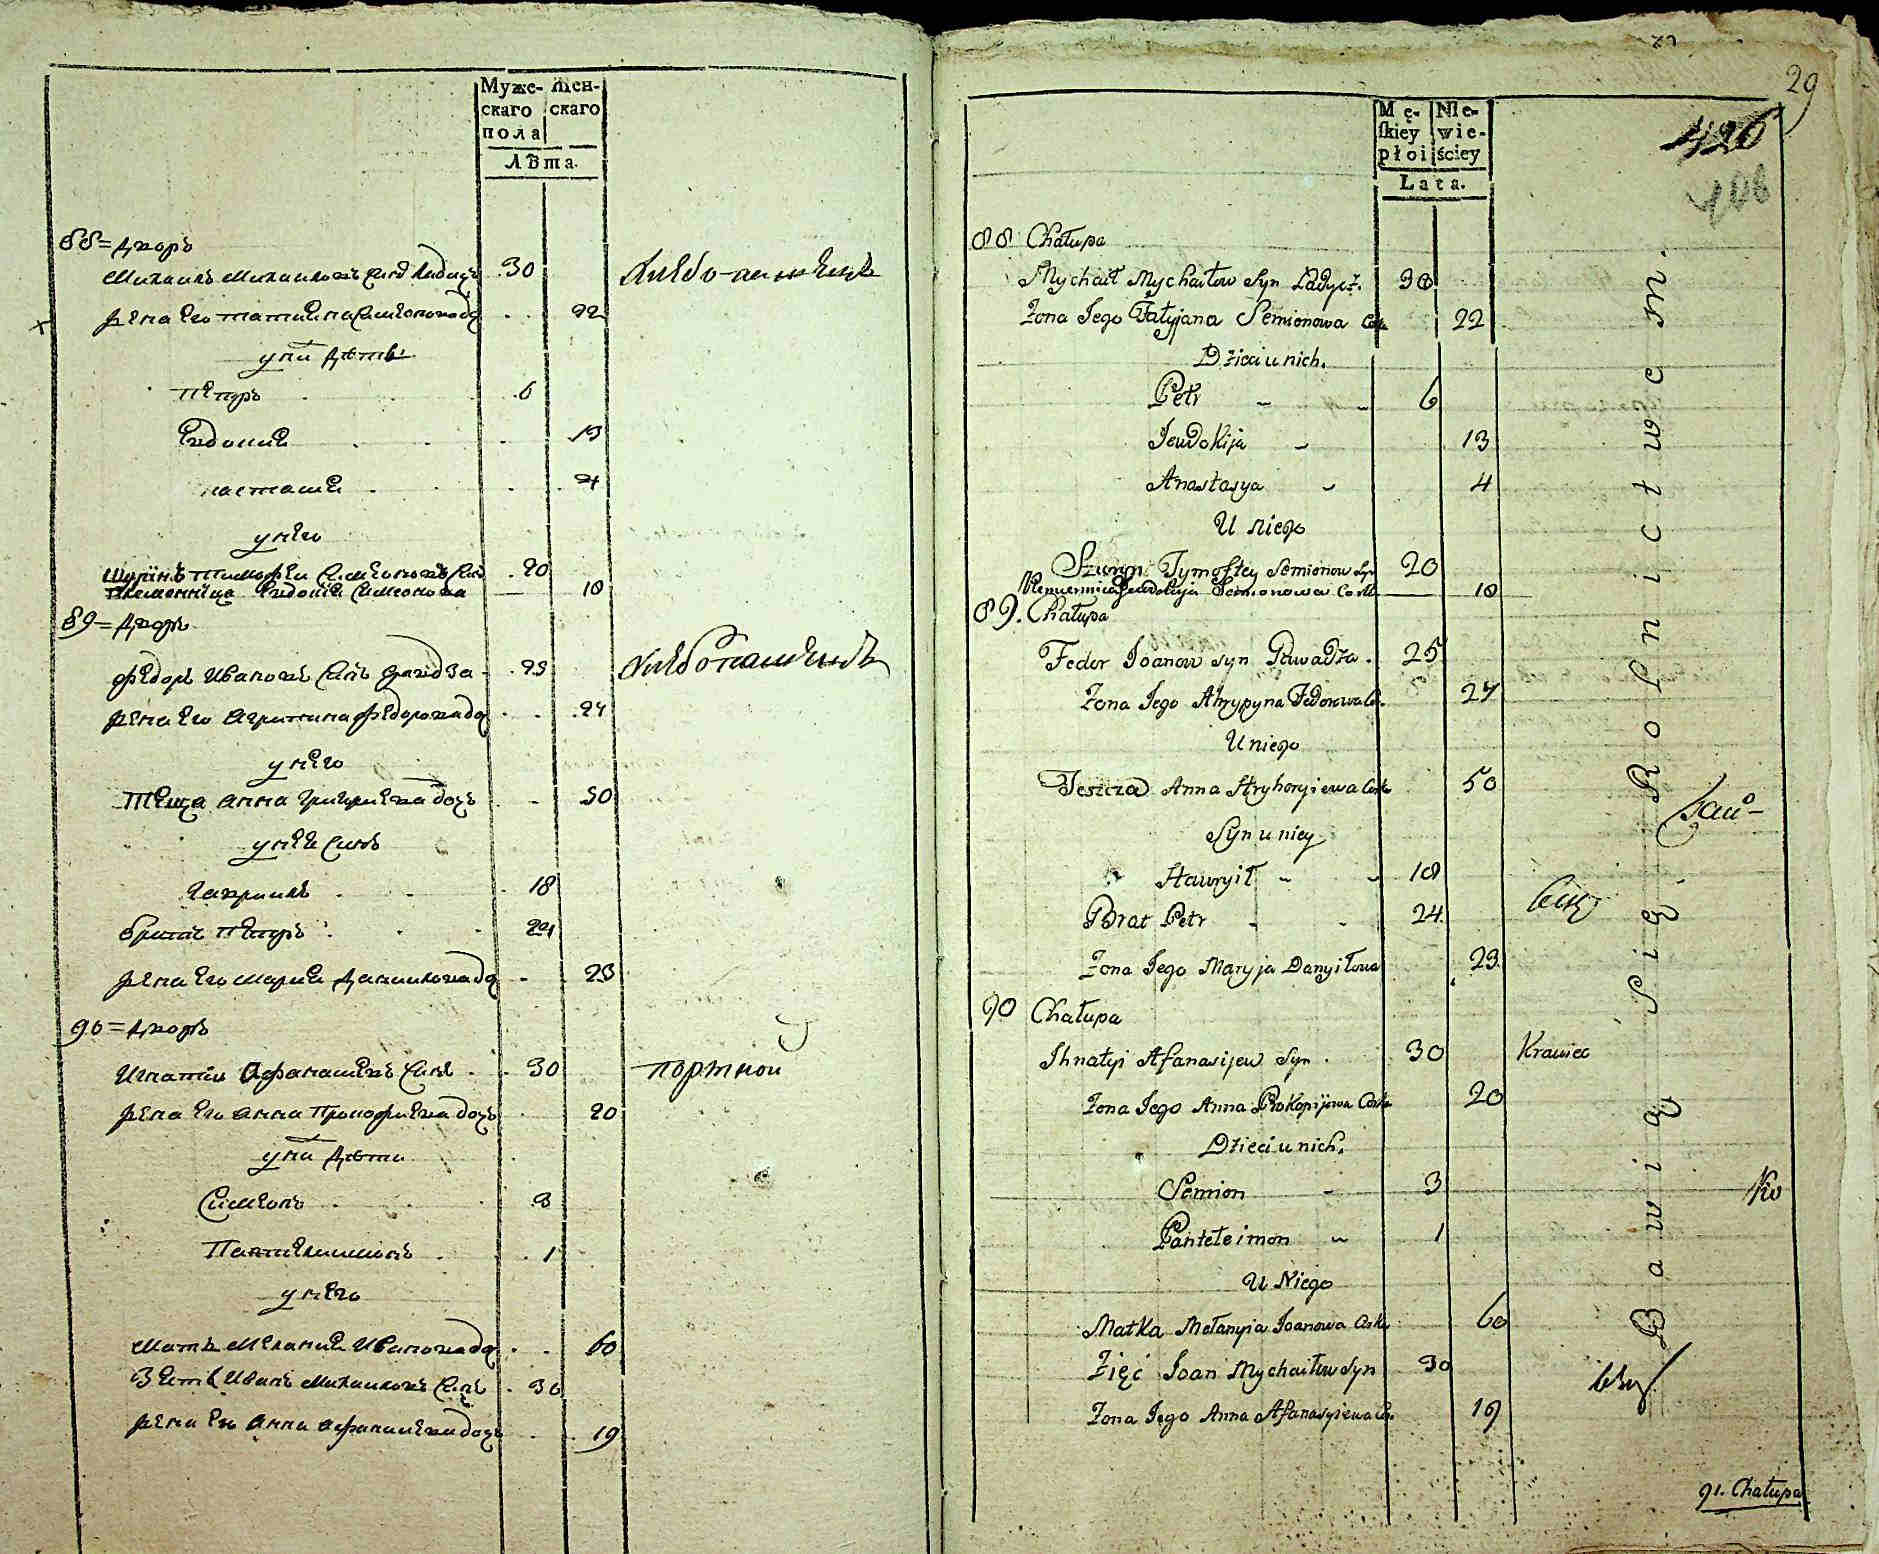 Муже- Жен-
скаго скаго
пола
Лѣта.
88 = дворъ
Михаилъ Михаиловъ синъ Ладыжъ 30
жена его татиана Симеонова до 22
у ни дѣти
Петръ 6
Евдокиа 13
настасиа 4
у него
Шуринъ тимофеи Симеоновъ синъ 20
Племенница Евдокиа Симеонова 10
89 = дворъ
Федоръ Ивановъ синъ 25
жена его агрипина федорова до 24
у него
Теща анна григориева доч 50
у неи синъ
гавриилъ 18
братъ Петръ 24
жена его мариа Данилова до 23
90 = дворъ
Игнатіи Афанасиевъ синъ 30 портнои
жена его анна Прокофиева доч 20
у ни дѣти
Симеонъ 3
Пантелиимонъ 1
у него
мать меланиа Иванова до 60
Зять Иванъ Михаиловъ синъ 30
жена его анна афанасиева доч 19
29
426
Mę- Nie-
skiey wie-
płoi ściey
Lata.
88 Chałupa
Mychaił Mychaiłow Syn Ładyż. 30
Żona Jego Tatyjana Semionowa Cork 22
Dzieci u nich.
Petr 6
Jewdokija 13
Anastasya 4
U niego
Szuryn Tymoftey Semionow Syn 20
Plemiennica Jewdokija Semionowa Cork 10
89. Chałupa
Fedor Joanow syn Gwadza. 25
Żona Jego Ahrypyna Fedorowa Co. 24
U niego
Teszcza Anna Hryhoryiewa Cork 50
Syn u niey
Hawryił 18
Brat Petr 24
Żona Jego Maryja Danyiłowa 23
90 Chałupa
Ihnatyi Afanasijew Syn 30 Krawiec
Żona Jego Anna Prokopijewa Cork 20
Dzieci u nich.
Semion 3
Panteleimon 1
U Niego
Matka Mełanyia Joanowa Cork 60
Zięć Joan Mychaiłow Syn 30
Żona Jego Anna Afanasyiewa Co. 19
Bawią Się Rolnictwem.
91. Chałupa